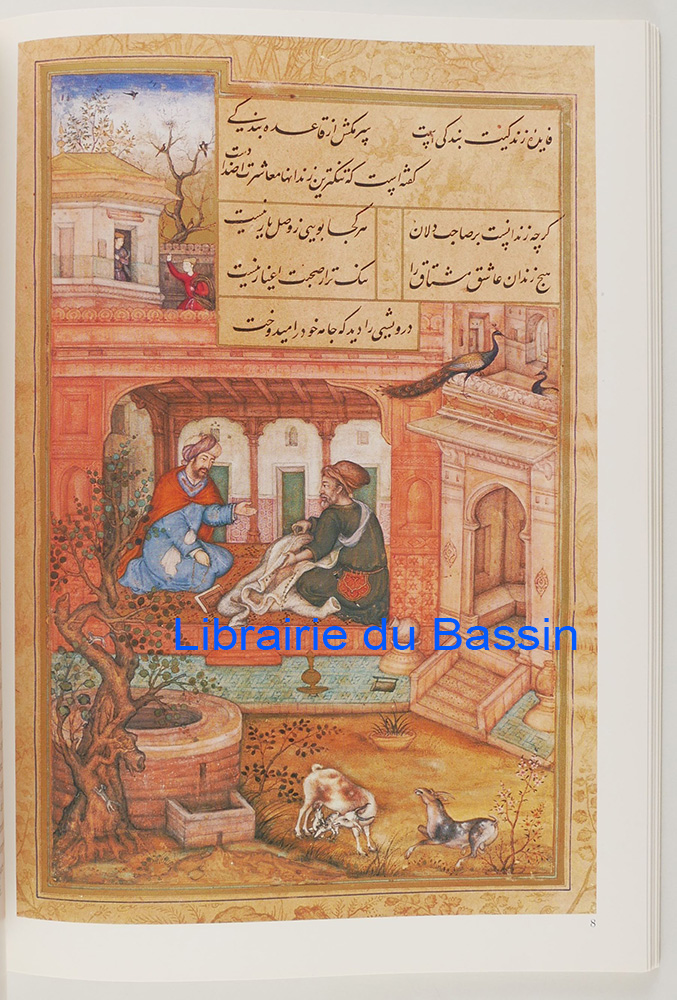 فایده زندگیت بندگی اپت سرمکش از قاعده بندگی
گفته است که تنگترین زندانها معاشرت اضداد است
گرچه زندانپست بر صاحب دلان هر کجا بویی ز وصل یار نیست
هیچ زندان عاشق مشتاق را تنک تر از صحبت اغیار نیست
درویشی را دید که جامه خود را میدوخت
Librairie du Bassin
8